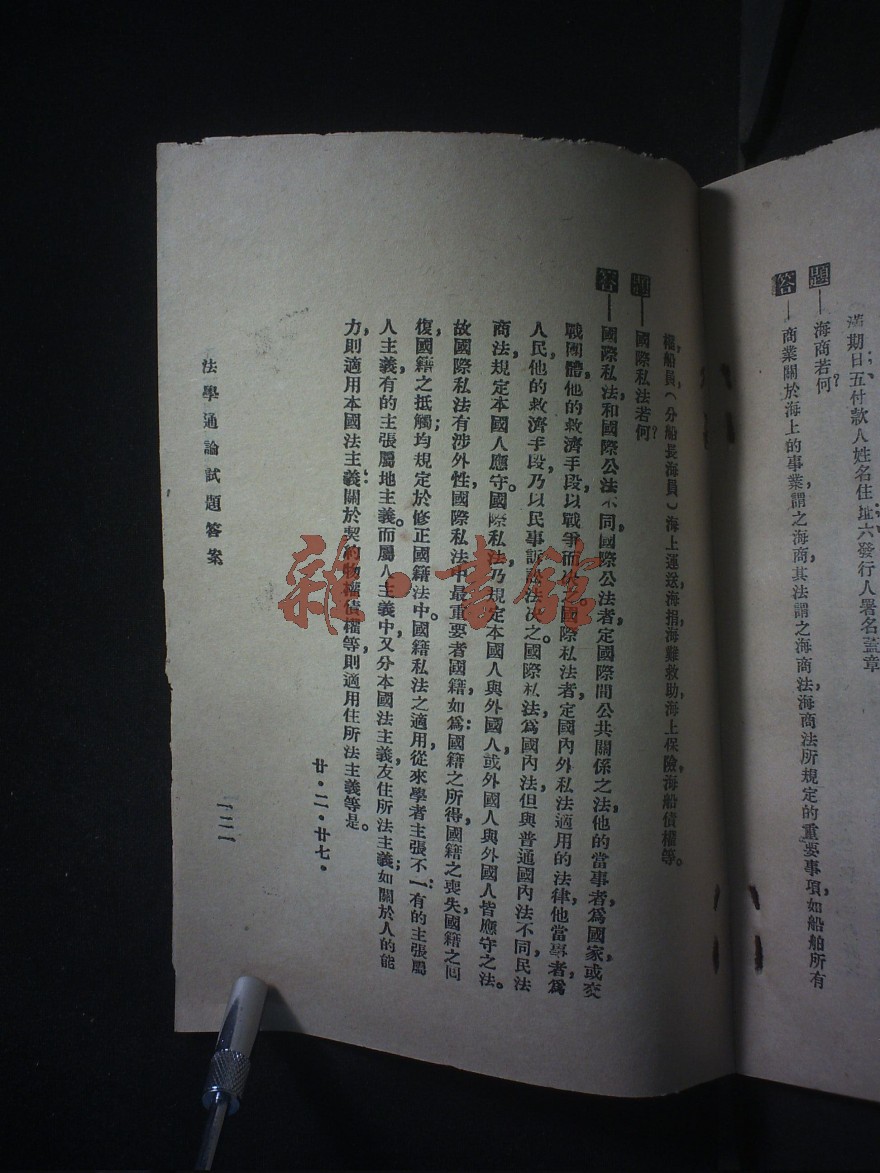 滿期日五付款人姓名住址六發行人署名蓋章
題——海商若何？
答——商業關於海上的事業，謂之海商其法謂之海商法海商法所規定的重要事項，如船舶所有
權，船員，（分船長海員）海上運送海捐海難救助，海上保險海船債權等。
題——國際私法若何？
答——國際私法，和國際公法不同，國際公法者，定國際間公共關係之法，他的當事者，爲國家，或交
戰團體，他的救濟手段，以戰爭而决之。國際私法者，定國內外私法適用的法律，他當事者，爲
人民，他的救濟手段，乃以民事訴訟法决之。國際私法，爲國內法，但與普通國內法不同，民法
商法，規定本國人應守。國際私法，乃規定本國人與外國人，或外國人與外國人皆應守之法。
故國際私法有涉外性，國際私法中最重要者國籍，如爲：國籍之所得，國籍之喪失，國籍之囘
復，國籍之抵觸；均規定於修正國籍法中。國籍私法之適用，從來學者主張不一：有的主張屬
人主義，有的主張屬地主義。而屬人主義中，又分本國法主義，友住所法主義；如關於人的能
力，則適用本國法主義；關於契約，物權，債權等，則適用住所法主義等是。
廿·二·廿七·
法學通論試題答案
一二一
雜·書館